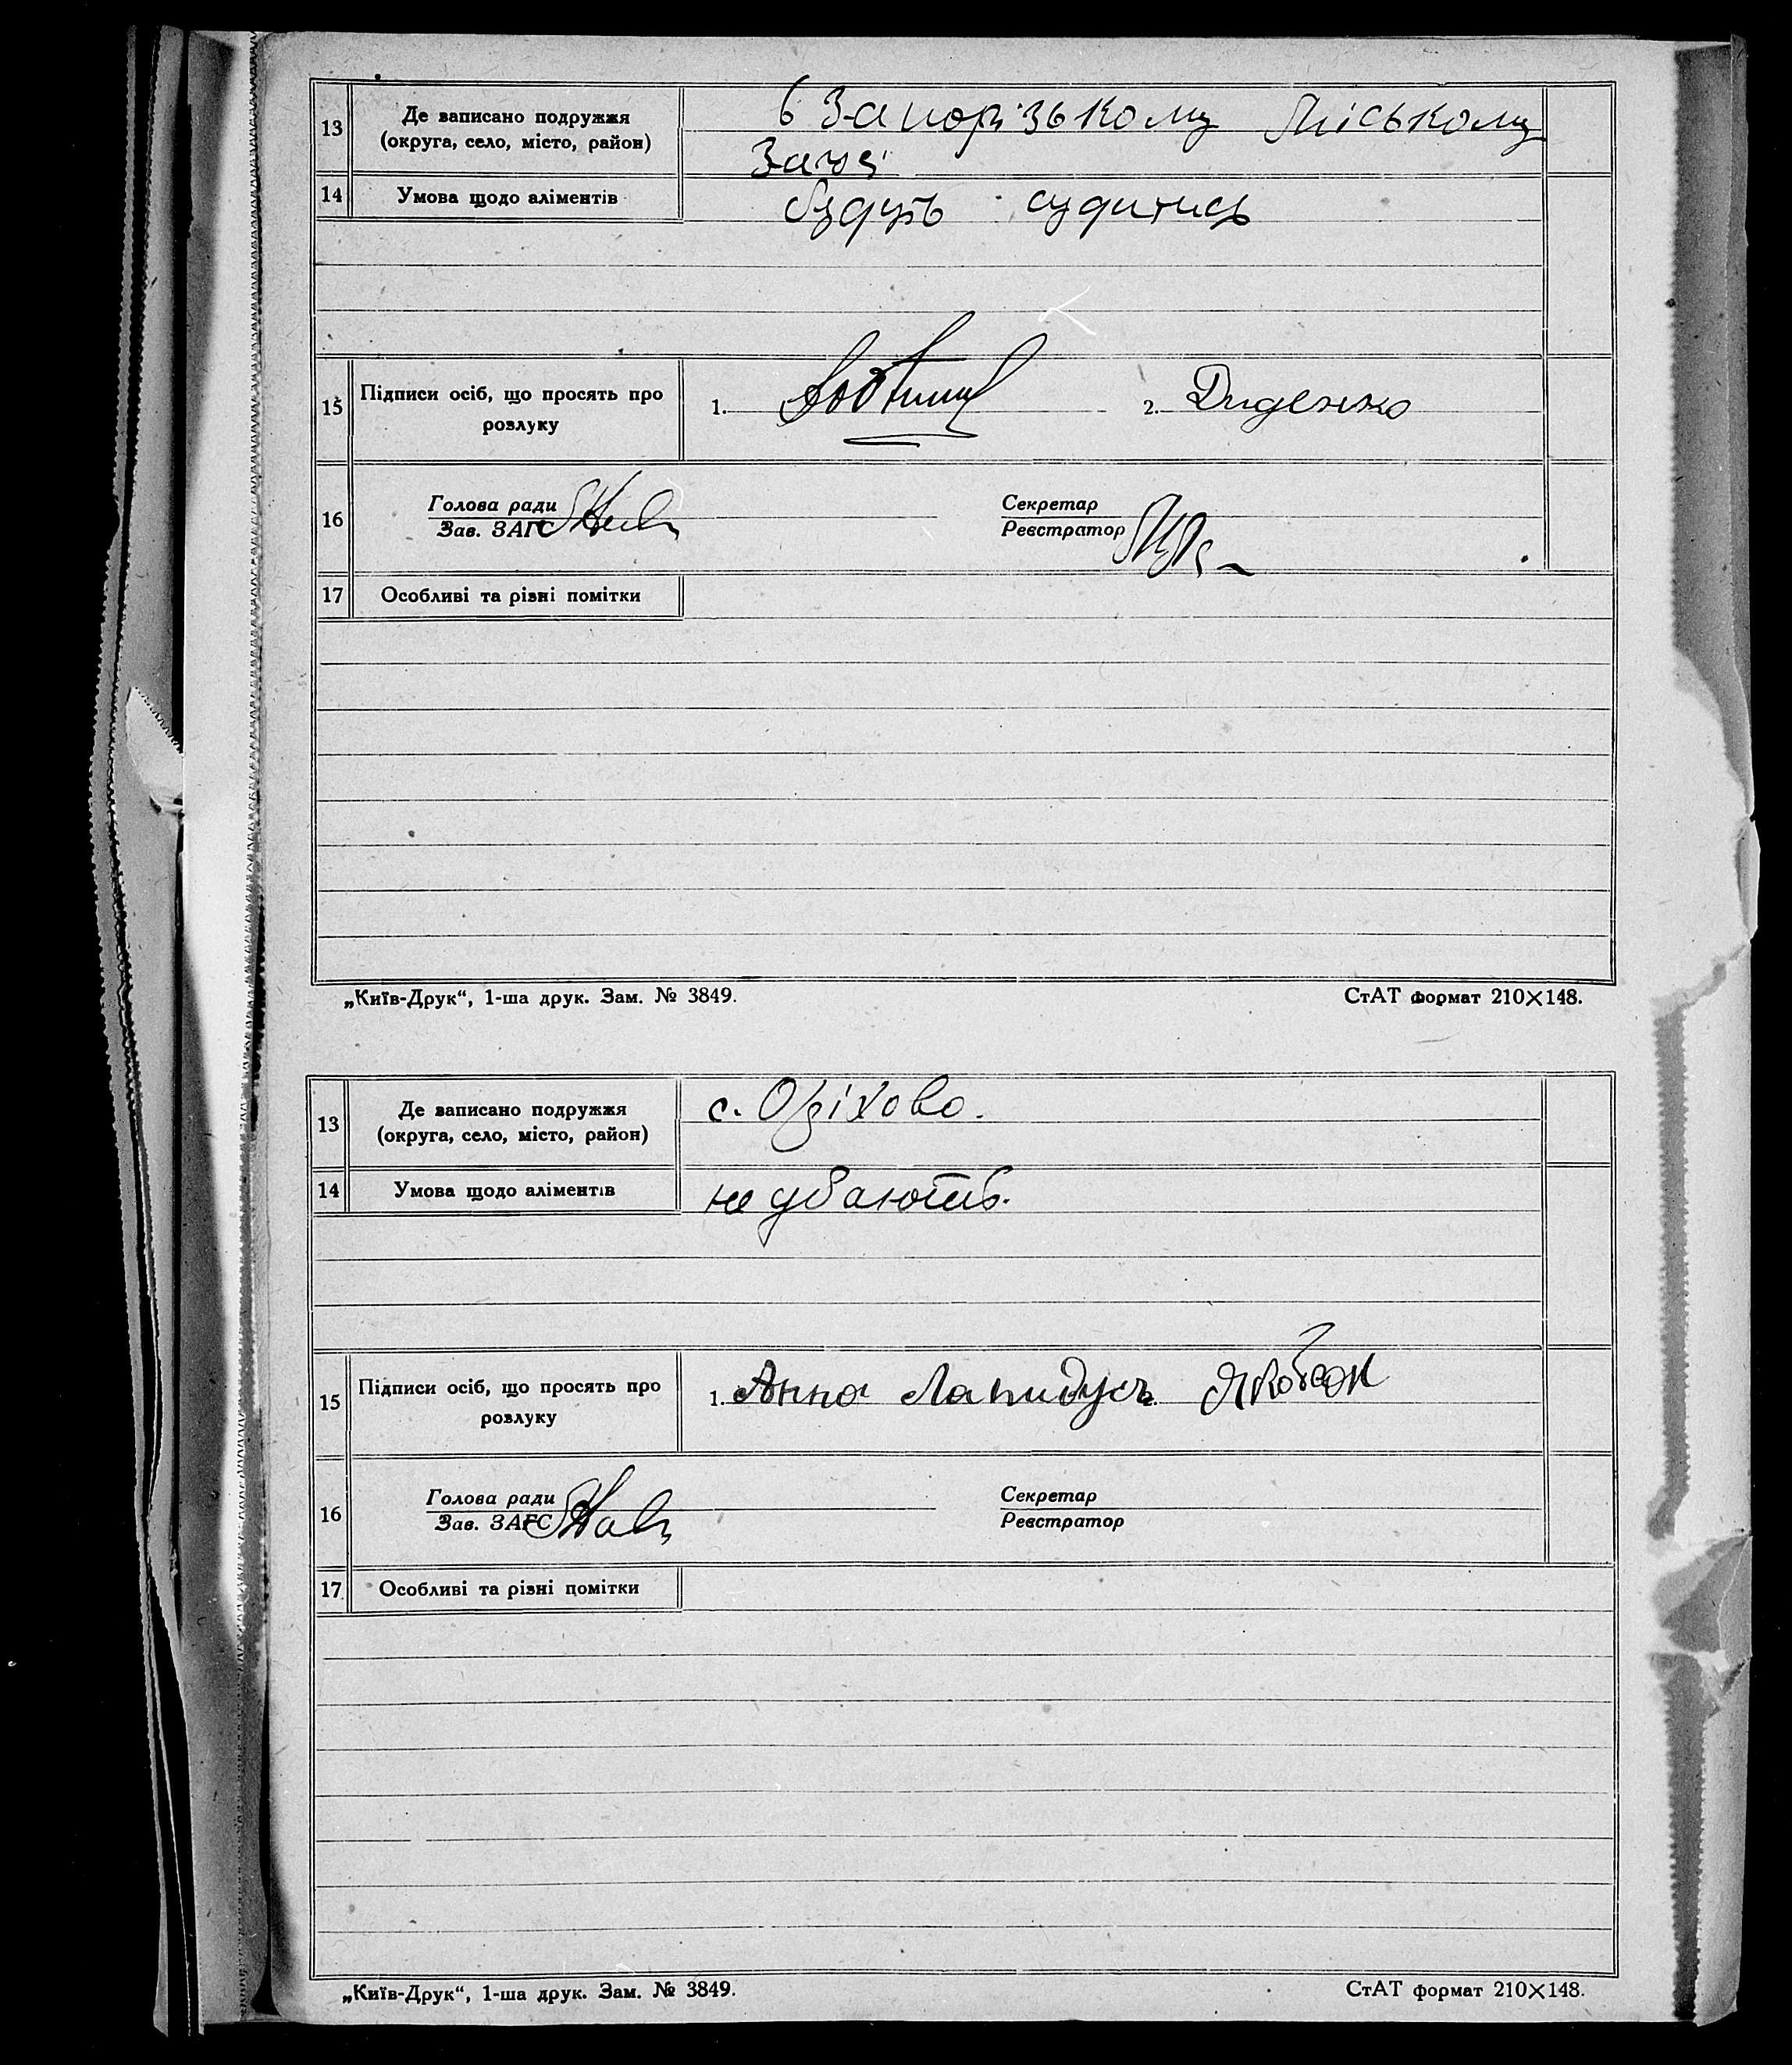 13 Де записано подружжя
(округа, село, місто, район)
в Запорізькому Міському
Загсі
14 Умова щодо аліментів
будуть судитись
15 Підписи осіб, що просять про
розлуку
1. 2. Диденко
16 Голова ради
Зав. ЗАГС
Секретар
Реєстратор
17 Особливі та різні помітки
„Київ-Друк“, 1-ша друк. Зам. № 3849. СтАТ формат 210×148.
13 Де записано подружжя
(округа, село, місто, район)
с. Оріхово.
14 Умова щодо аліментів
не дбають.
15 Підписи осіб, що просять про
розлуку
1. Анна Лапидусъ 2. Якобсон
16 Голова ради
Зав. ЗАГС
Секретар
Реєстратор
17 Особливі та різні помітки
„Київ-Друк“, 1-ша друк. Зам. № 3849. СтАТ формат 210×148.